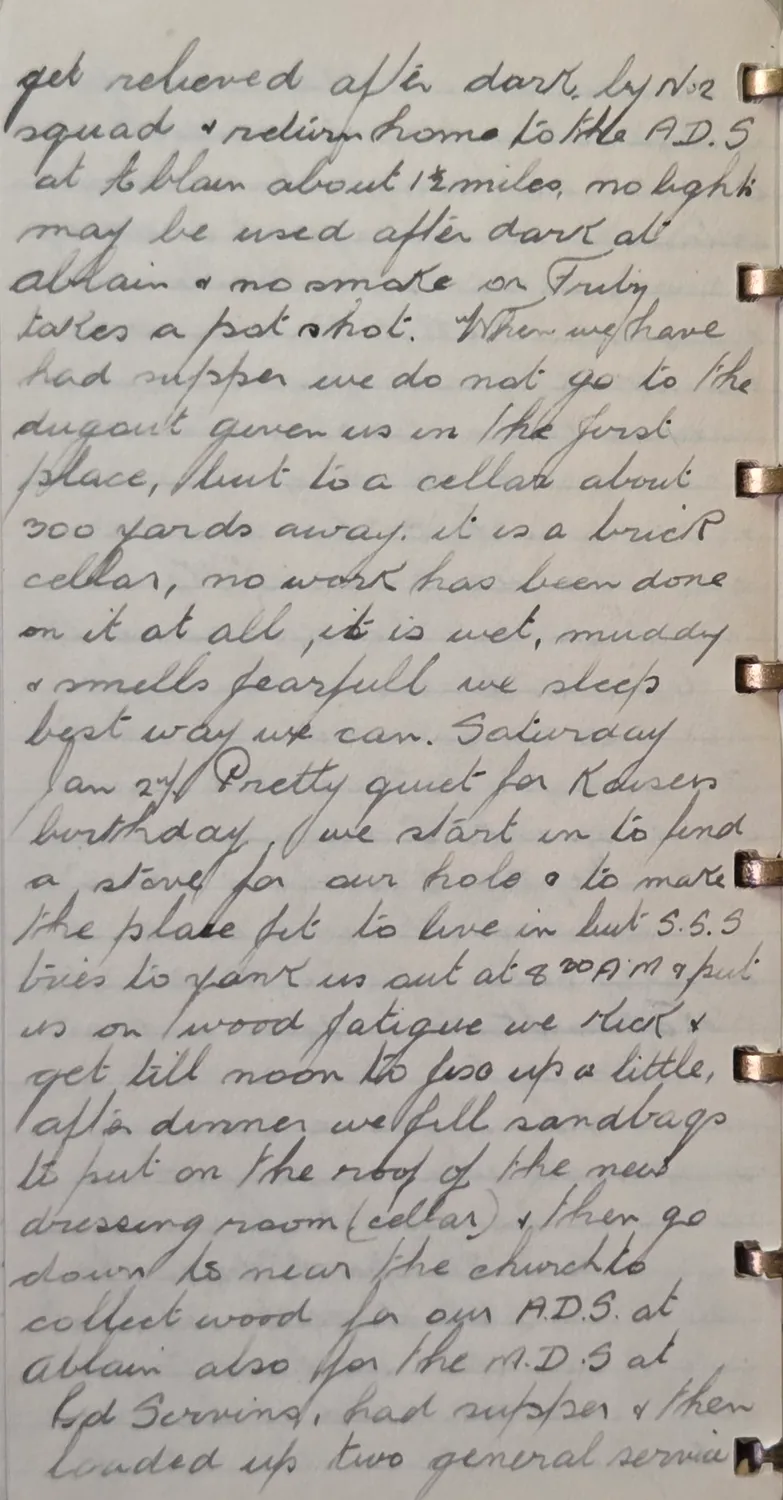 get relieved after dark, by No 2
squad & return home to the A.D.S
at Ablain about 1½ miles, no lights
may be used after dark at
Ablain & no smoke or Fritz
takes a pot shot. When we have
had supper we do not go to the
dugout given us in the first
place, but to a cellar about
300 yards away. it is a brick
cellar, no work has been done
on it at all, it is wet, muddy
& smells fearfull we sleep
best way we can. Saturday
Jan 27. Pretty quiet for Kaisers
birthday, we start in to find
a stove for our hole & to make
the place fit to live in but S.S.S
tries to yank us out at 8 30 A.M & put
us on wood fatigue we kick &
get till noon to fix up a little,
after dinner we fill sandbags
to put on the roof of the new
dressing room (cellar) & then go
down to near the church to
collect wood for our A.D.S. at
Ablain also for the M.D.S at
Gd Servins, had supper & then
loaded up two general service